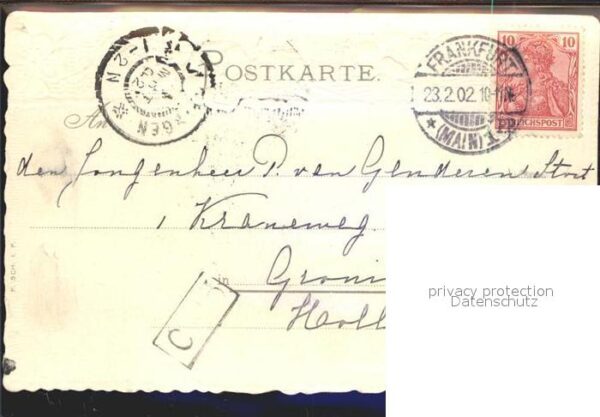 POSTKARTE.
FRANKFURT
23.2.02.10-11
* (MAIN) *
10 10
REICHSPOST
1-2 N
An
den Jongenheer P. van Genderen Stort
1 Kraneweg
in Groni
Holl
C
privacy protection
Datenschutz